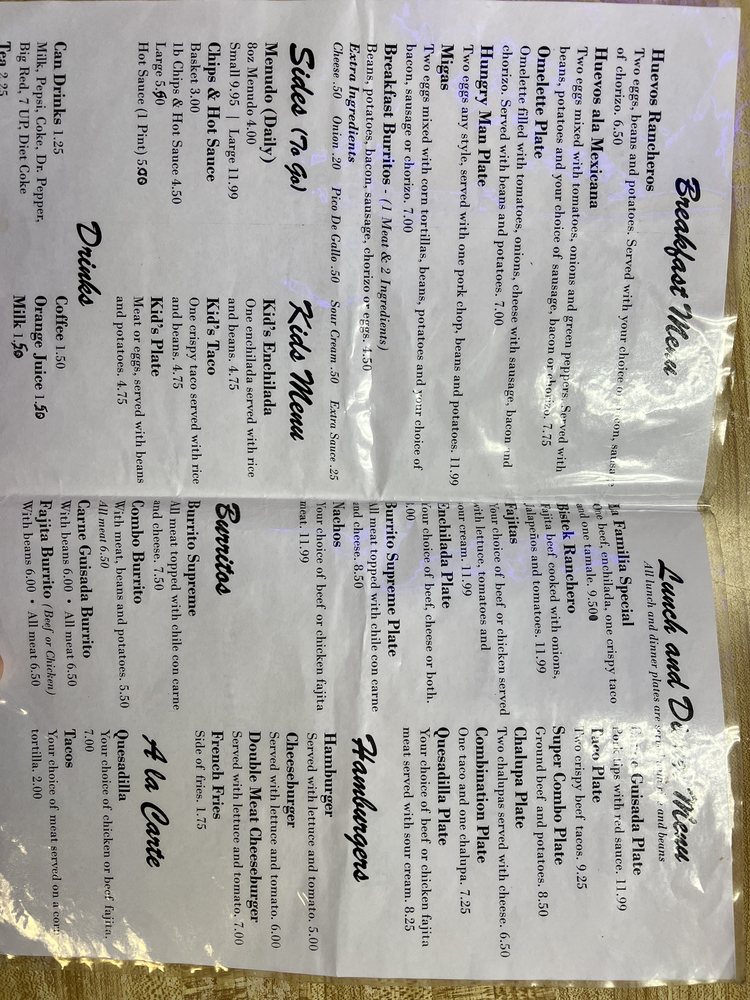 Breakfast Menu
Huevos Rancheros
Two eggs, beans and potatoes. Served with your choice of bacon, sausage
of chorizo. 6.50
Huevos ala Mexicana
Two eggs mixed with tomatoes, onions and green peppers. Served with
beans, potatoes and your choice of sausage, bacon or chorizo. 7.75
Omelette Plate
Omelette filled with tomatoes, onions, cheese with sausage, bacon and
chorizo. Served with beans and potatoes. 7.00
Hungry Man Plate
Two eggs any style, served with one pork chop, beans and potatoes. 11.99
Migas
Two eggs mixed with corn tortillas, beans, potatoes and your choice of
bacon, sausage or chorizo. 7.00
Breakfast Burritos - (1 Meat & 2 Ingredients)
Beans, potatoes, bacon, sausage, chorizo or eggs. 4.50
Extra Ingredients
Cheese .50 Onion .20 Pico De Gallo .50 Sour Cream .50 Extra Sauce .25
Sides (To Go)
Menudo (Daily)
8oz Menudo 4.00
Small 9.95 | Large 11.99
Chips & Hot Sauce
Basket 3.00
1lb Chips & Hot Sauce 4.50
Large
Hot Sauce (1 Pint) 5.00
Kids Menu
Kid's Enchilada
One enchilada served with rice
and beans. 4.75
Kid's Taco
One crispy taco served with rice
and beans. 4.75
Kid's Plate
Meat or eggs, served with beans
and potatoes. 4.75
Drinks
Can Drinks 1.25
Milk, Pepsi, Coke, Dr. Pepper,
Big Red, 7 UP, Diet Coke
Tea 2.25
Coffee 1.50
Orange Juice 1.50
Milk 1.50
Lunch and Dinner Menu
All lunch and dinner plates are served with rice and beans
La Familia Special
One beef, enchilada, one crispy taco
and one tamale. 9.50
Bistek Ranchero
Fajita beef cooked with onions,
jalapeños and tomatoes. 11.99
Fajitas
Your choice of beef or chicken served
with lettuce, tomatoes and
sour cream. 11.99
Enchilada Plate
Your choice of beef, cheese or both.
.00
Burrito Supreme Plate
All meat topped with chile con carne
and cheese. 8.50
Nachos
Your choice of beef or chicken fajita
meat. 11.99
Guisada Plate
Pork tips with red sauce. 11.99
Taco Plate
Two crispy beef tacos. 9.25
Super Combo Plate
Ground beef and potatoes. 8.50
Chalupa Plate
Two chalupas served with cheese. 6.50
Combination Plate
One taco and one chalupa. 7.25
Quesadilla Plate
Your choice of beef or chicken fajita
meat served with sour cream. 8.25
Burritos
Burrito Supreme
All meat topped with chile con carne
and cheese. 7.50
Combo Burrito
With meat, beans and potatoes. 5.50
All meat 6.50
Carne Guisada Burrito
With beans 6.00 • All meat 6.50
Fajita Burrito (Beef or Chicken)
With beans 6.00 • All meat 6.50
Hamburgers
Hamburger
Served with lettuce and tomato. 5.00
Cheeseburger
Served with lettuce and tomato. 6.00
Double Meat Cheeseburger
Served with lettuce and tomato. 7.00
French Fries
Side of fries. 1.75
A la Carte
Quesadilla
Your choice of chicken or beef fajita.
7.00
Tacos
Your choice of meat served on a corn
tortilla. 2.00